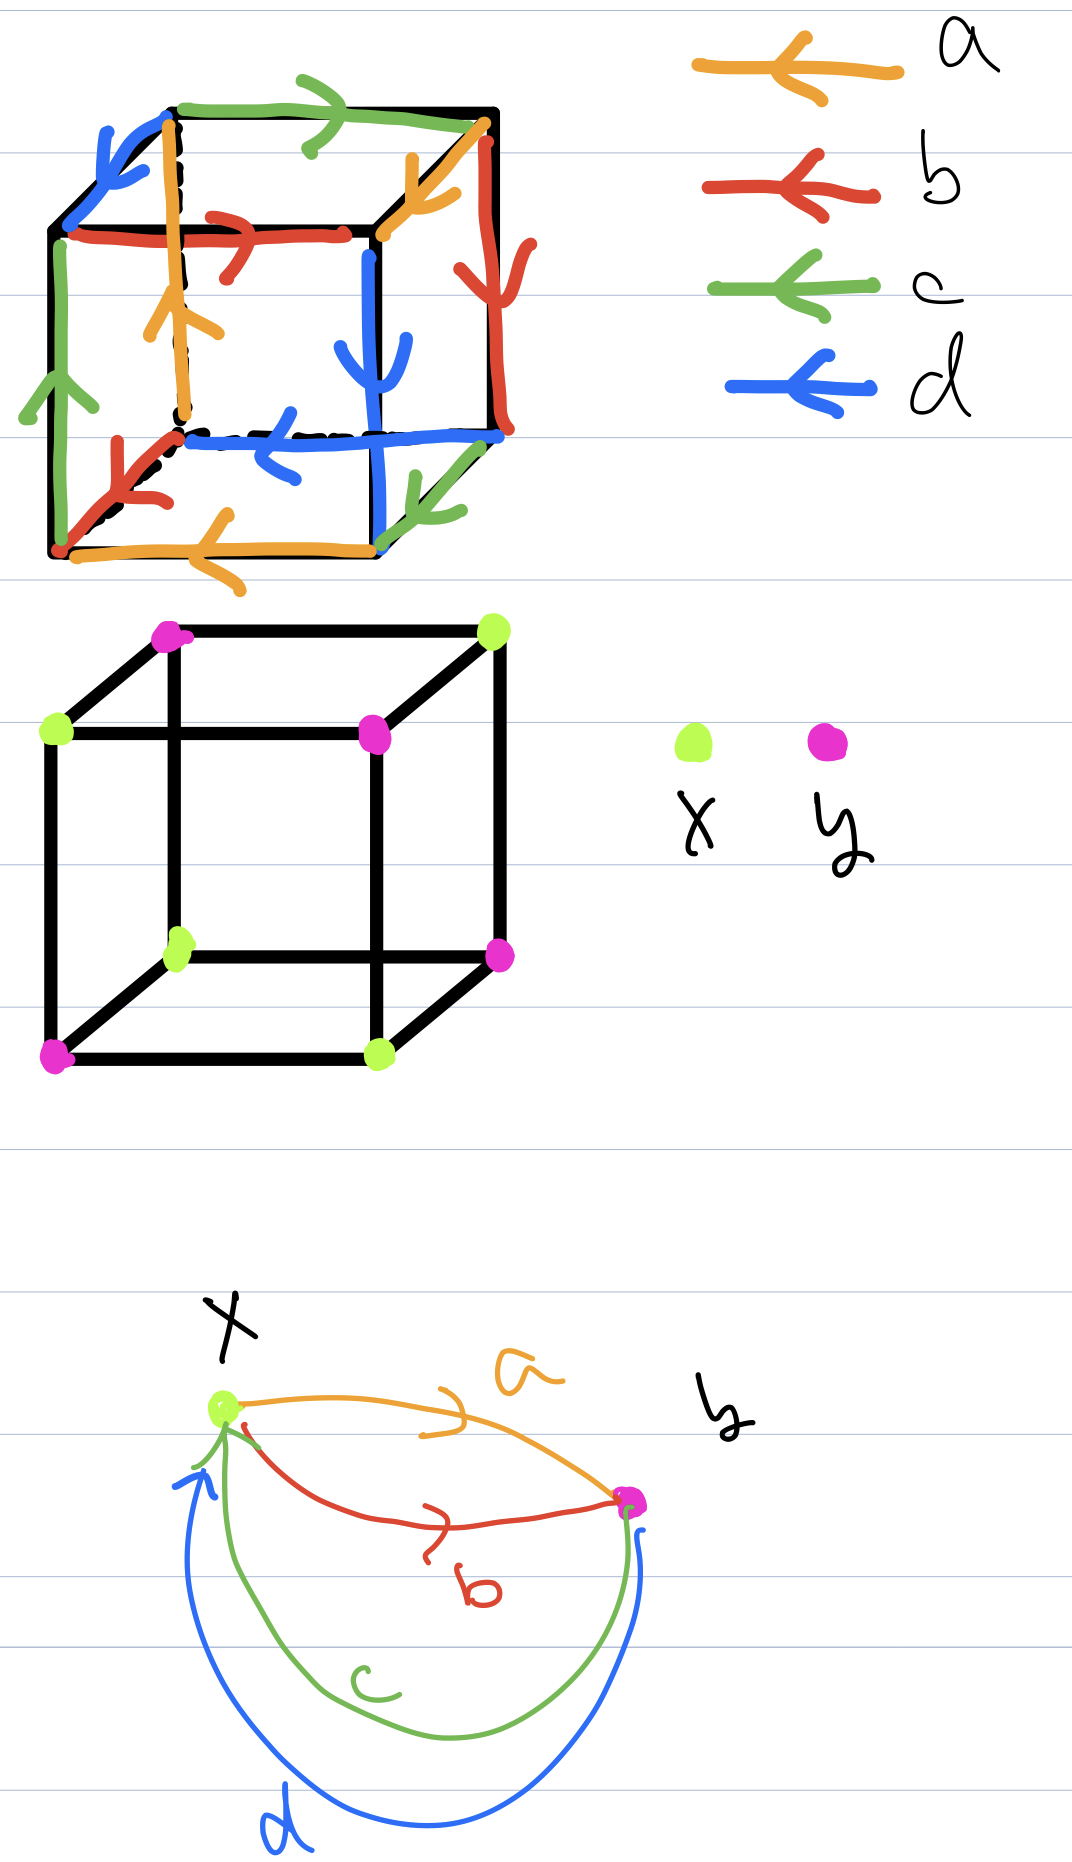 a
b
c
d
x y
x
a
y
b
c
d